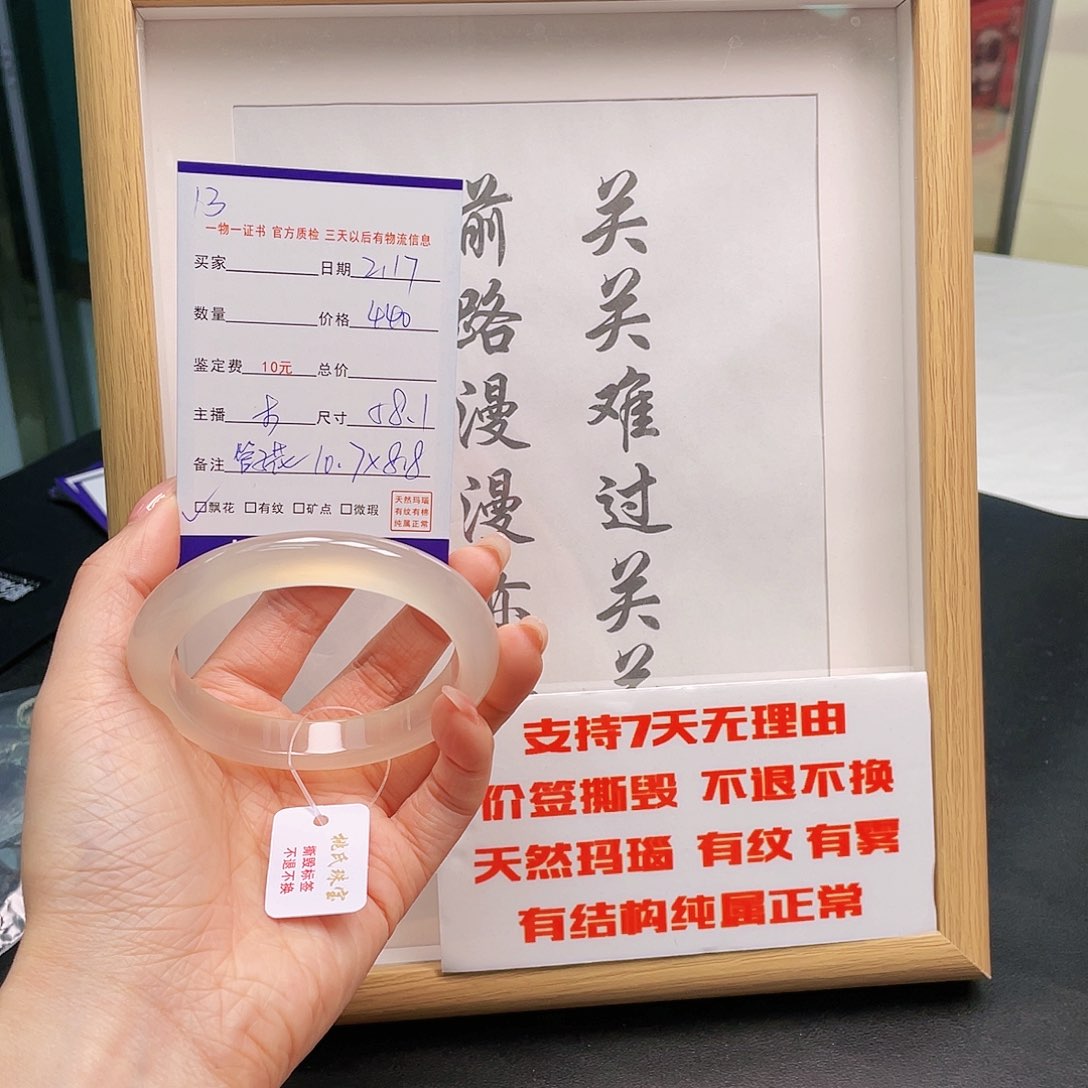 13
一物一证书 官方质检 三天以后有物流信息
买家 日期 2.17
数量 价格 440
鉴定费 10元 总价
主播 尺寸 58.1
备注 10.7×8.8
☑飘花 □有纹 □矿点 □微瑕
天然玛瑙
有纹有棉
纯属正常
关关难过关关
前路漫漫亦
支持7天无理由
价签撕毁 不退不换
天然玛瑙 有纹 有雾
有结构纯属正常
姚氏珠宝
撕毁标签
不退不换